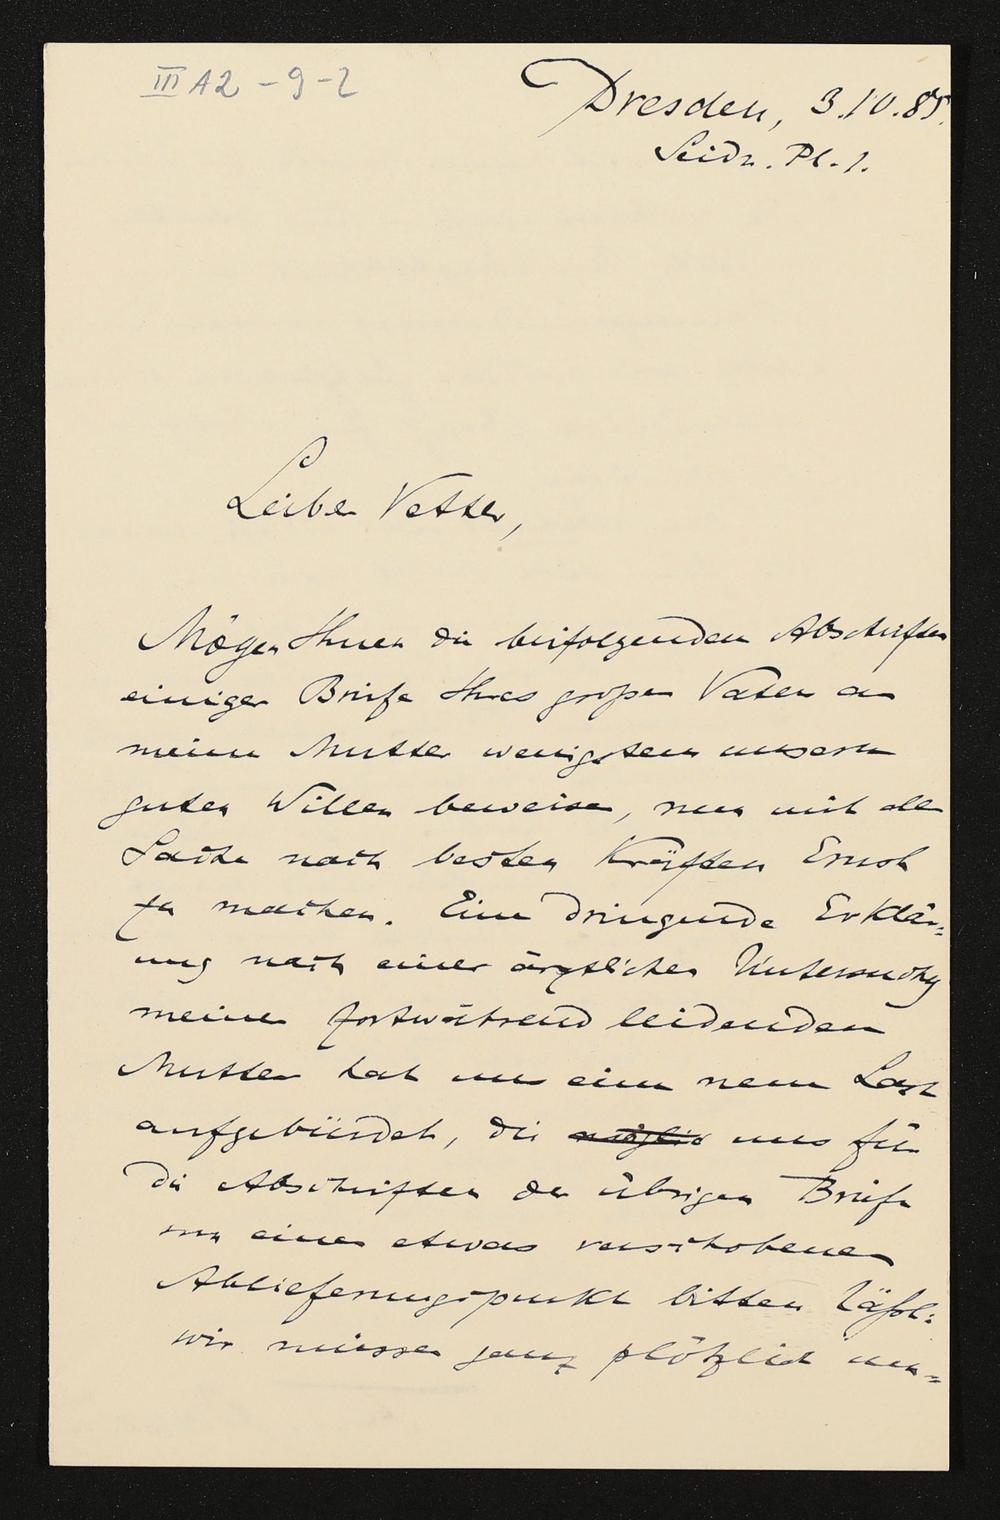 III A2 - 9 - 2
Dresden, 3.10.85.
Seidn. Pl. 1.
Lieber Vetter,
Mögen Ihnen die beifolgenden Abschriften
einiger Briefe Ihres großen Vaters an
meine Mutter wenigstens unseren
guten Willen beweisen, nun mit der
Sache nach besten Kräften Ernst
zu machen. Eine dringende Erklär-
ung nach einer ärztlichen Untersuchg
meiner fortwährend leidenden
Mutter hat uns eine neue Last
aufgebürdet, die uns für
die Abschriften der übrigen Briefe
um einen etwas verschobenen
Ablieferungspunkt bitten läßt:
wir müssen ganz plötzlich um-